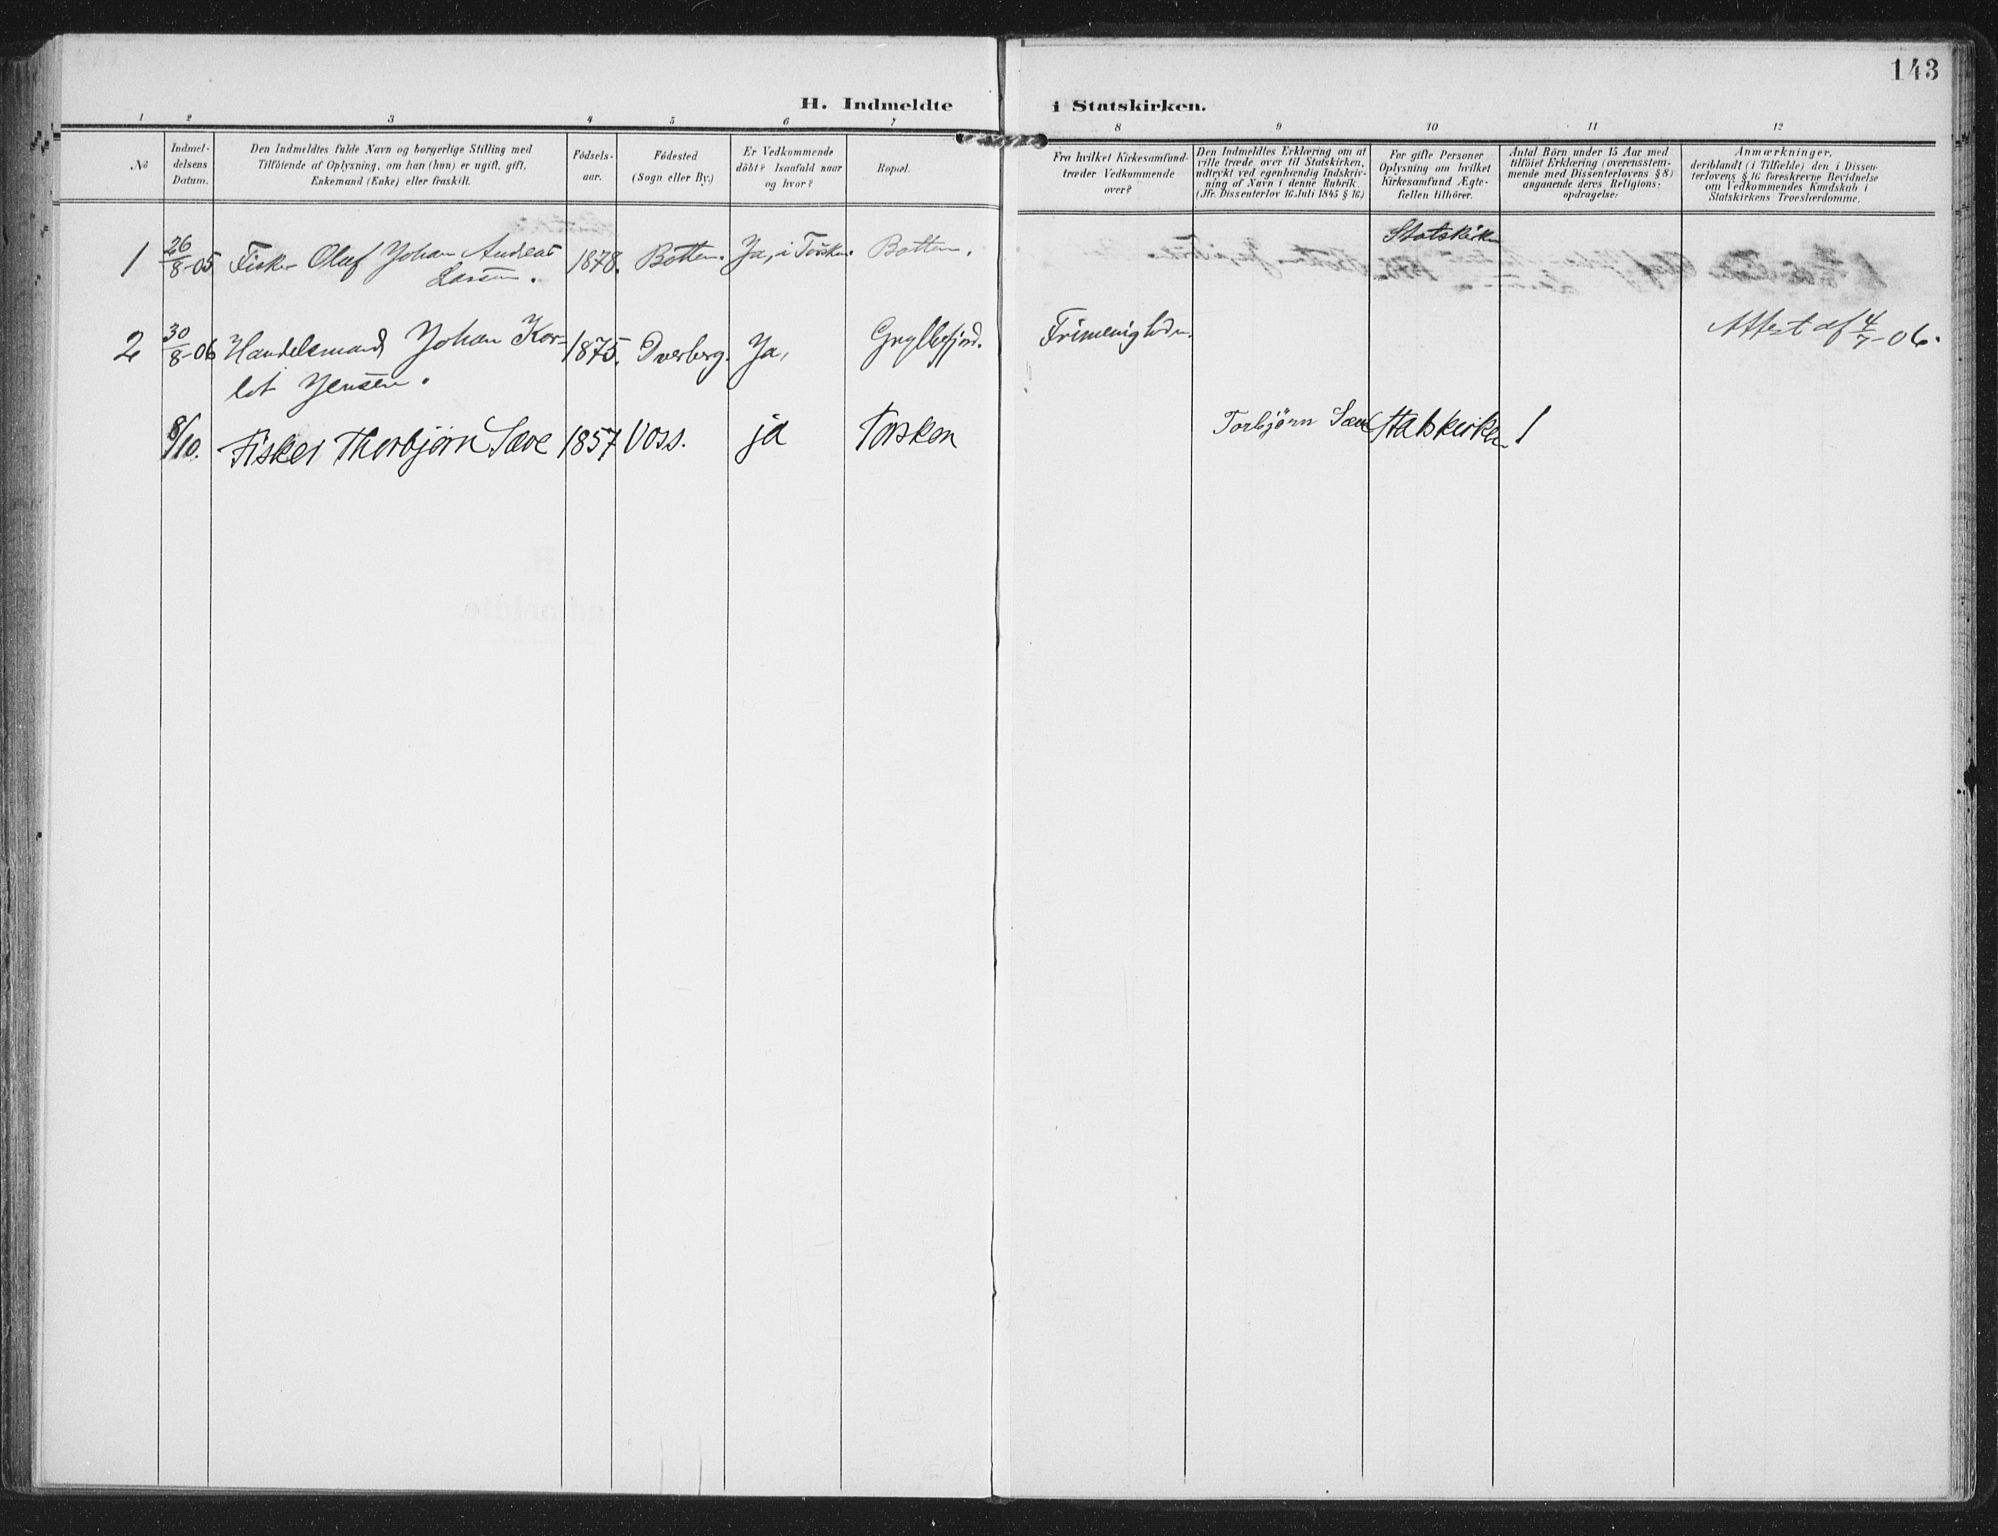 143
H. Indmeldte i Statskirken.
1 2 3 4 5 6 7 8 9 10 11 12
No
Indmel-
delsens
Datum.
Den Indmeldtes fulde Navn og borgerlige Stilling med
Tilföiende af Oplysning, om han (hun) er ugift, gift,
Enkemand (Enke) eller fraskilt.
Födsels-
aar.
Födested
(Sogn eller By.)
Er Vedkommende
döbt? Isaafald naar
og hvor?
Bopæl.
Fra hvilket Kirkesamfund
træder Vedkommende
over?
Den Indmeldtes Erklæring om at
ville træde over til Statskirken,
udtrykt ved egenhændig Indskriv-
ning af Navn i denne Rubrik.
(Jfr. Dissenterlov 16 Juli 1845 § 16)
For gifte Personer
Oplysning om hvilket
Kirkesamfund Ægte-
fællen tilhörer.
Antal Börn under 15 Aar med
tilföiet Erklæring (overensstem-
mende med Dissenterlovens § 8)
angaaende deres Religions-
opdragelse:
Anmærkninger,
deriblandt (i Tilfælde) den i Dissen-
terlovens § 16 foreskrevne Bevidnelse
om Vedkommendes Kundskab i
Statskirkens Troesherdomme.
1 26/8-05 Fisker Oluf Johan Andreas 1878. Botten. Ja, i Torsken. Botten. Statskirken
Larsen.
2 30/8-06 Handelsmand Johan Kor- 1875. Dverberg. Ja, Gryllefjord. Frimenigheden. Attest af 4/7-06.
lot Jensen.
8/10. Fisker Thorbjørn Sæve 1857 Voss. ja Torsken Torbjørn Sæve Statskirken 1